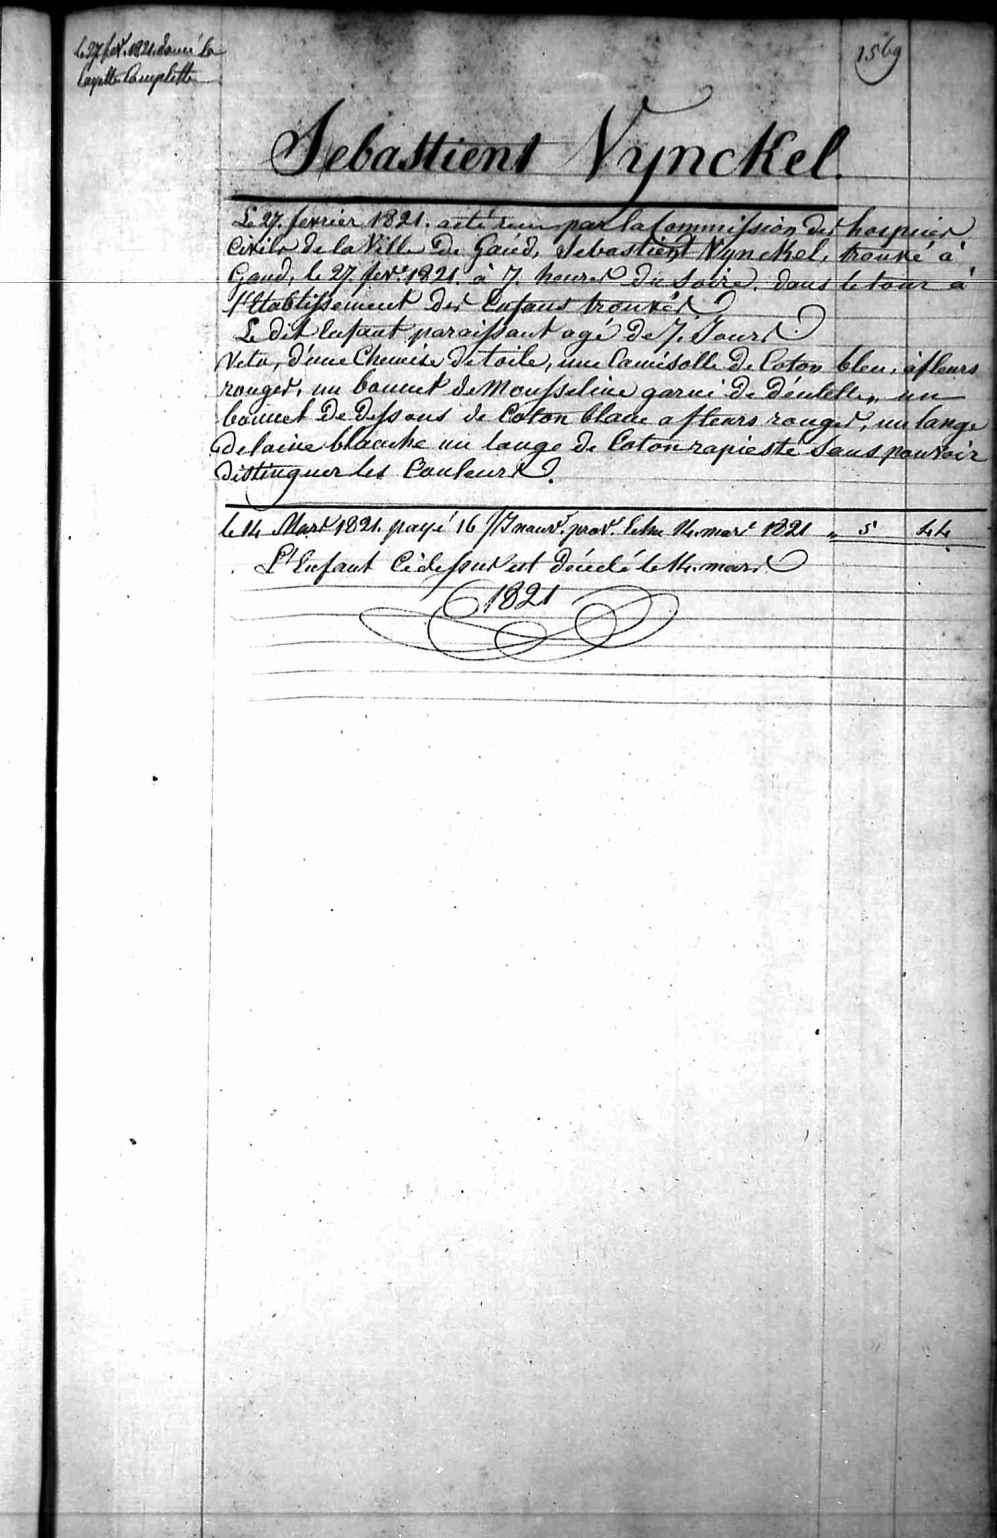 le 27 fevr. 1821. donné la
layette Complette
1569
Sebastient Nynckel.
Le 27. fevrier 1821. a eté recu par la Commission des hospices
Civils de la Ville de Gand, Sebastient Nynckel, trouvé à
Gand, le 27. fevr. 1821. à 7. heures du Soire. dans le tour à
l'Etablissement des Enfans trouvés
Le dit Enfant paraissant agé de 7. Jours.
Vetu, d'une Chemise de toile, une Camisolle de Coton bleu, à fleurs
rouges, un bonnet de Mousseline garni de dentelle, un
bonnet de dessous de Coton blanc a fleurs rouges, un lange
de laine blanche un lange de Coton rapiesté Sans pouvoir
distinguer les Couleurs.
le 14 Mars 1821. payé 16 Mars 1821 „ 5 44
L'Enfant Cidessus est décédé le 14. mars
1821